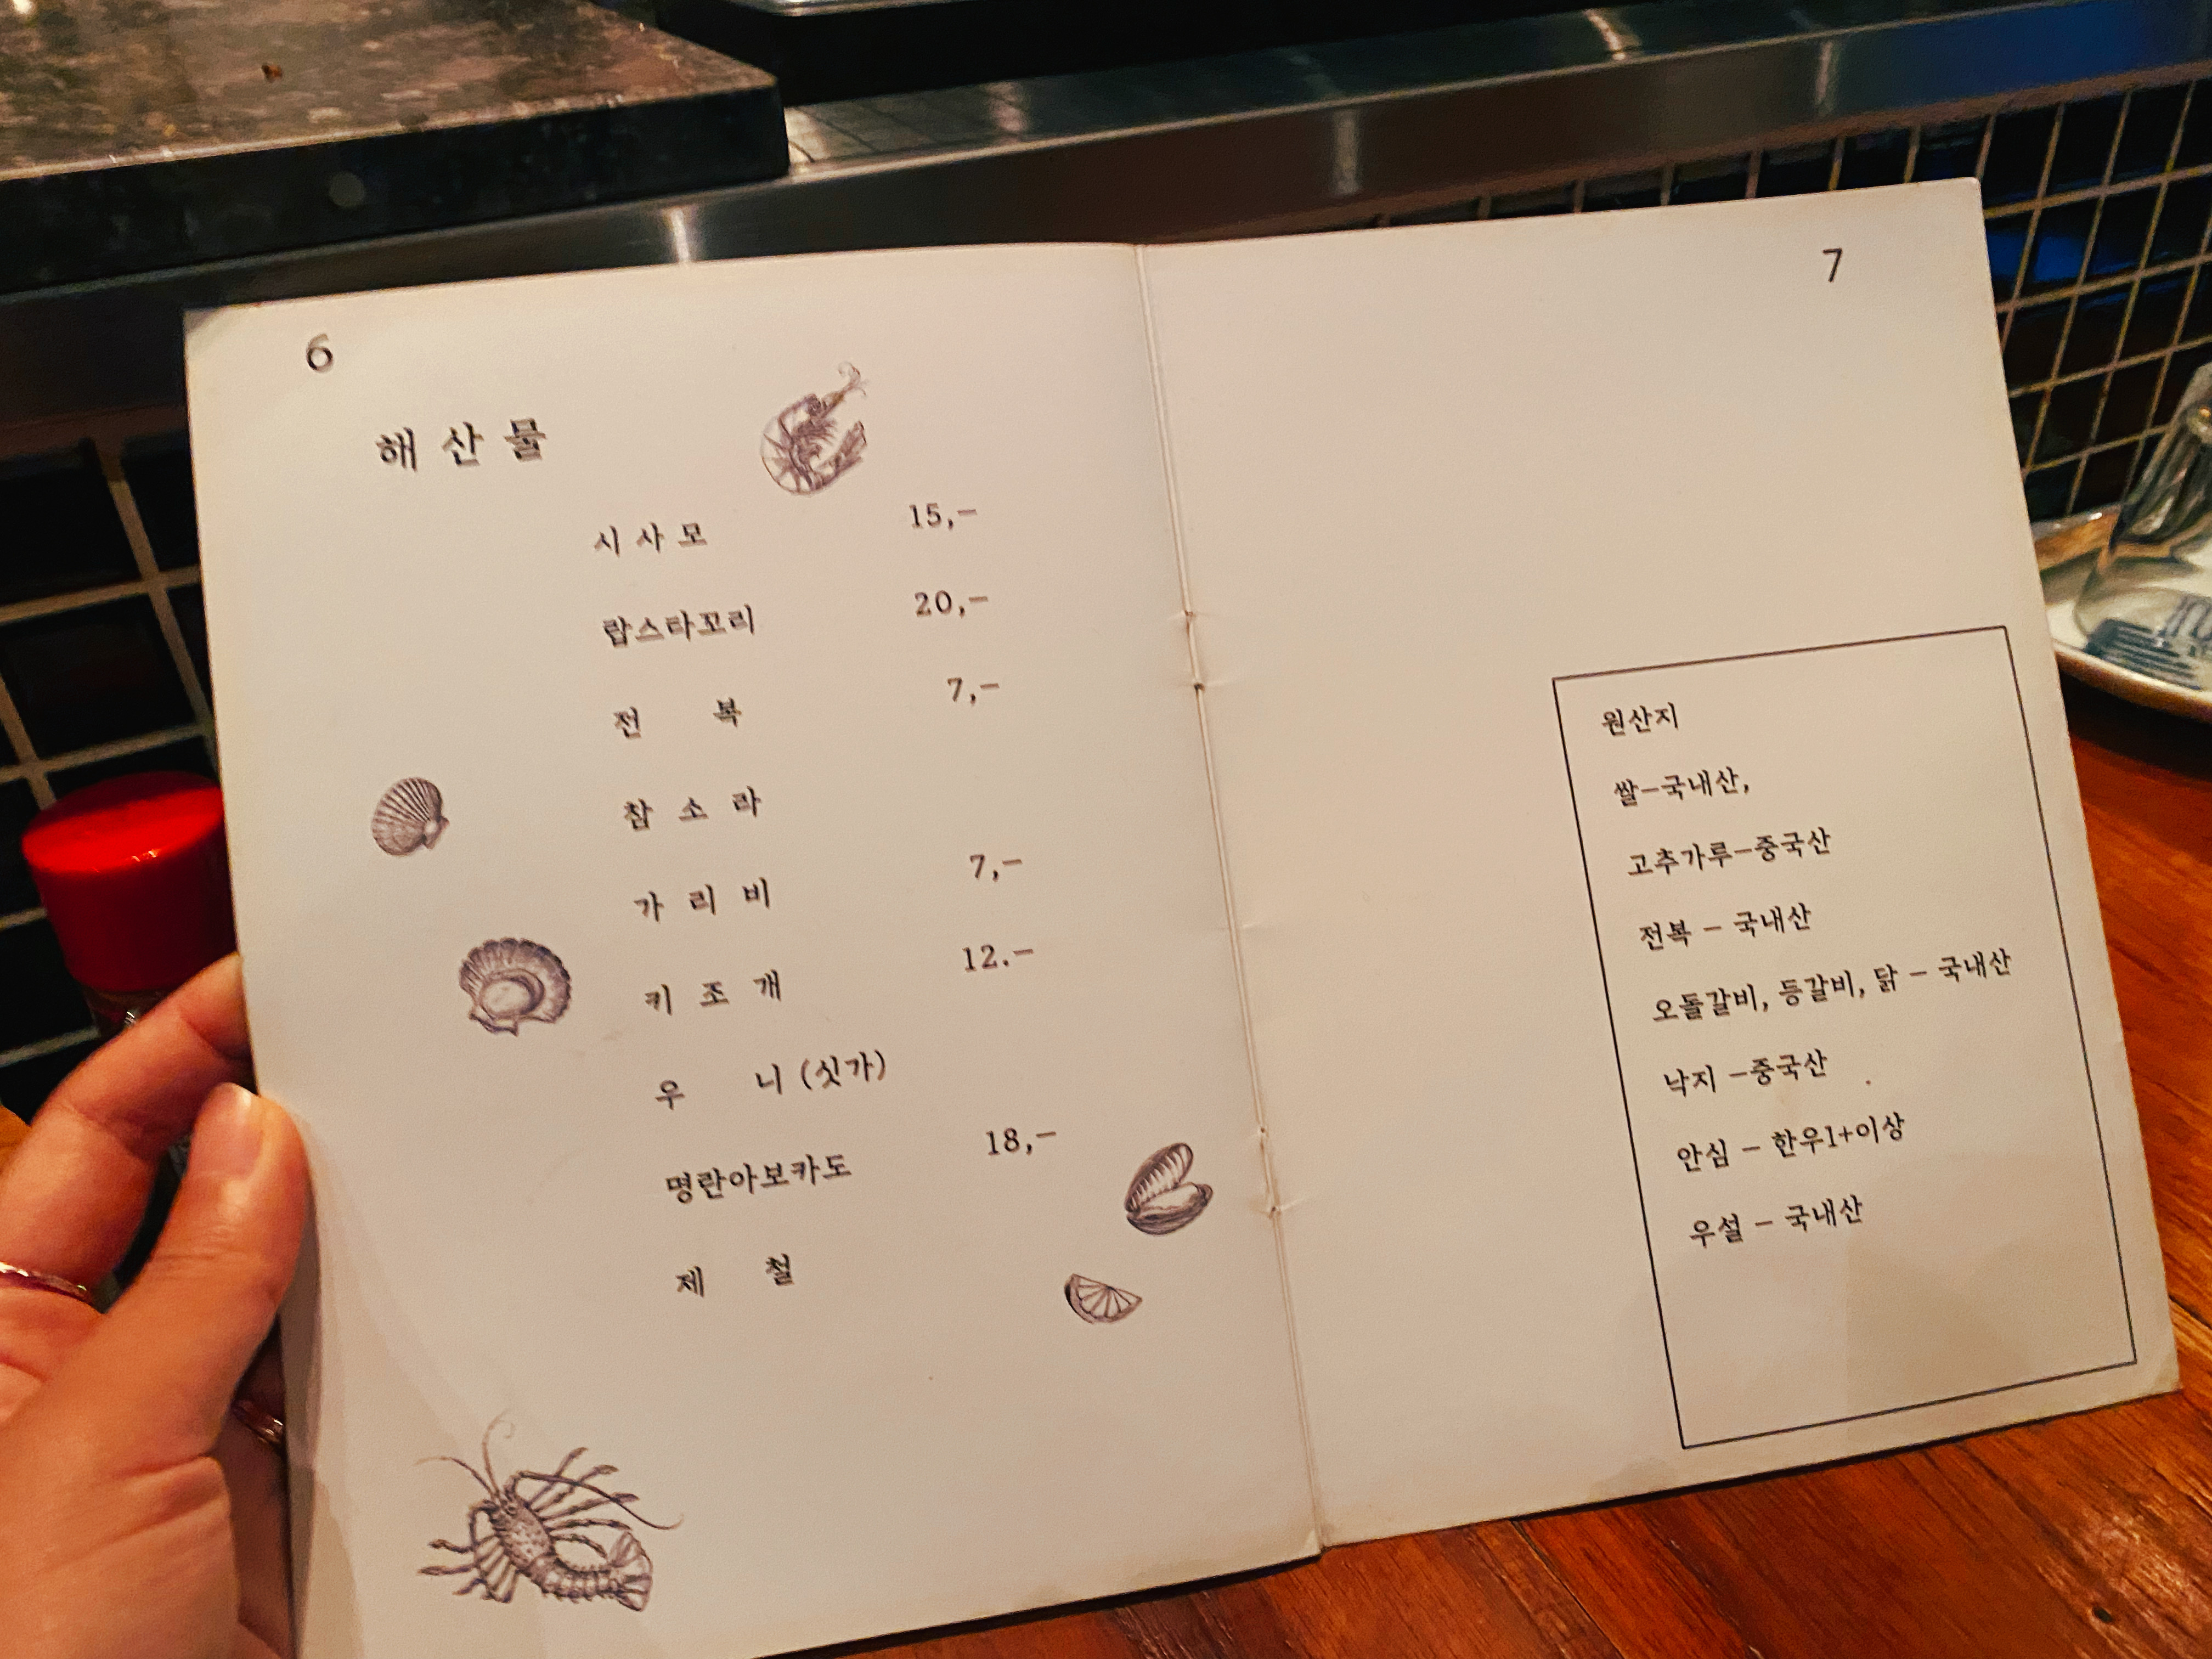 6
해산물
시사모 15,-
랍스타꼬리 20,-
전 복 7,-
참 소 라
가 리 비 7,-
키 조 개 12.-
우 니 (싯가)
명란아보카도 18,-
제 철
7
원산지
쌀-국내산,
고추가루-중국산
전복 - 국내산
오돌갈비, 등갈비, 닭 - 국내산
낙지 -중국산
안심 - 한우1+이상
우설 - 국내산